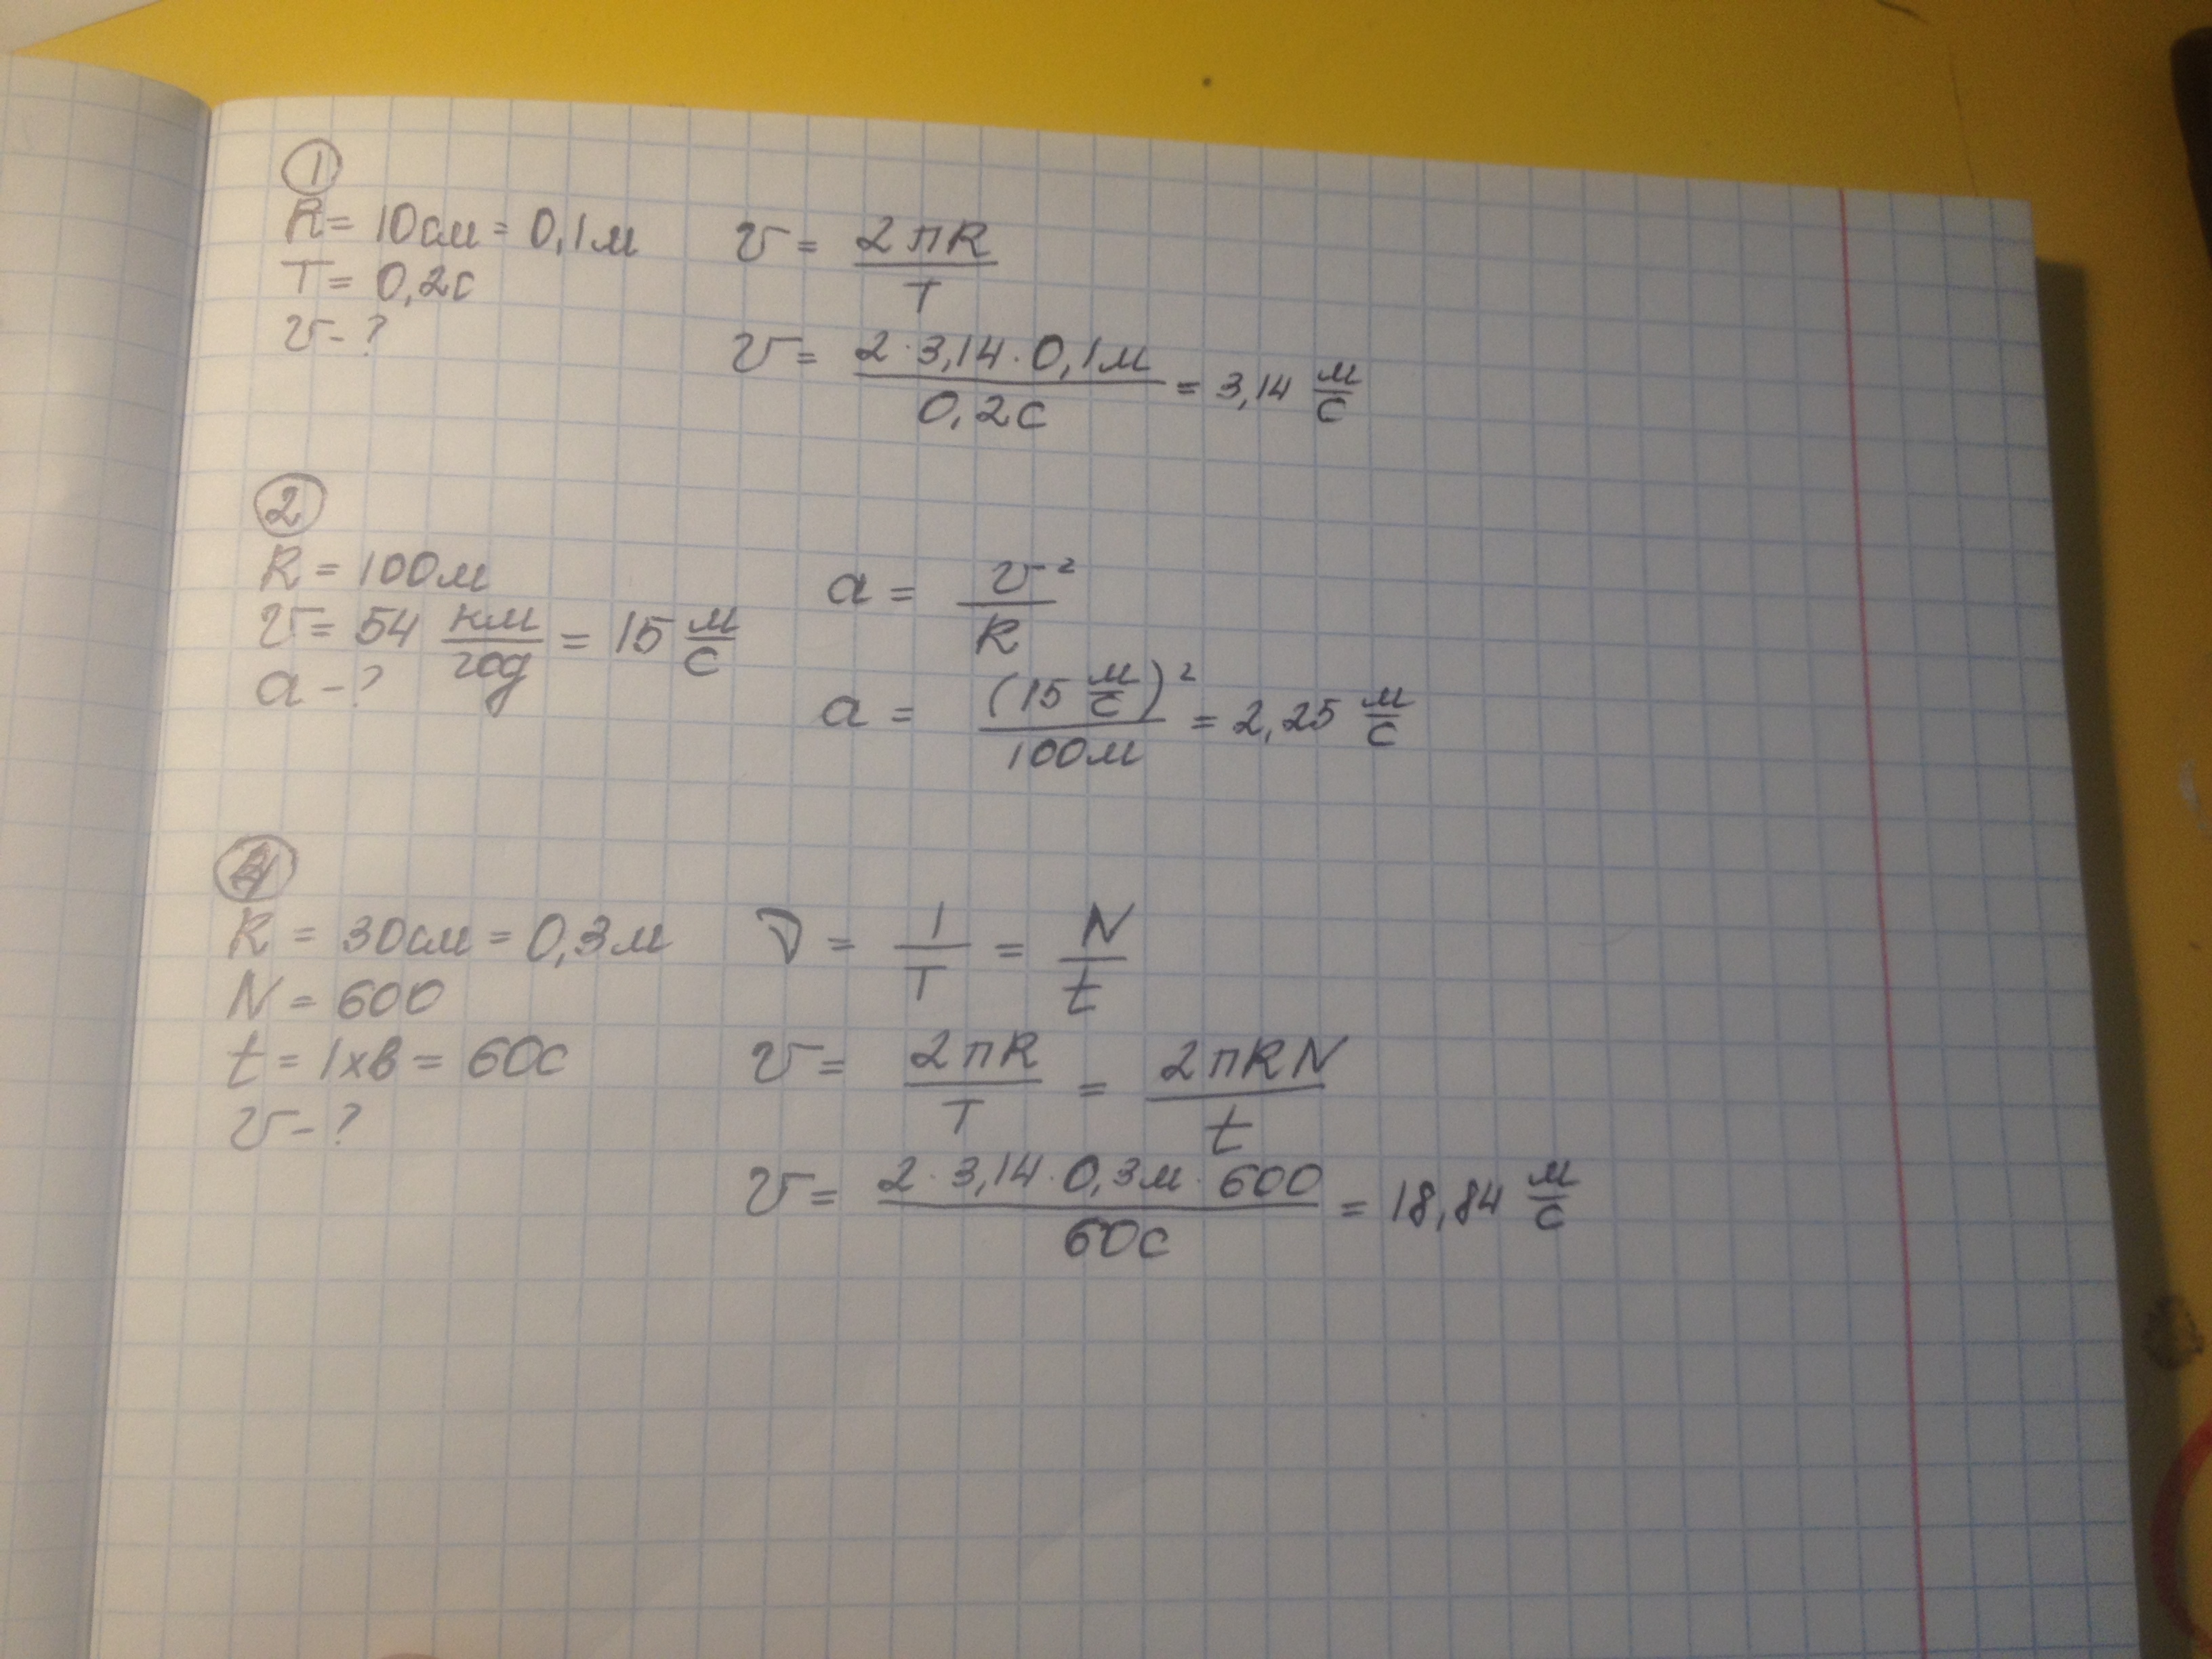 1
R = 10см = 0,1м
T = 0,2с
v - ?
v = 2πR / T
v = 2 · 3,14 · 0,1м / 0,2с = 3,14 м/с
2
R = 100м
v = 54 км/год = 15 м/с
a - ?
a = v² / R
a = (15 м/с)² / 100м = 2,25 м/с
R = 30см = 0,3м
N = 600
t = 1хв = 60с
v - ?
ν = 1/T = N/t
v = 2πR / T = 2πRN / t
v = 2 · 3,14 · 0,3м · 600 / 60с = 18,84 м/с